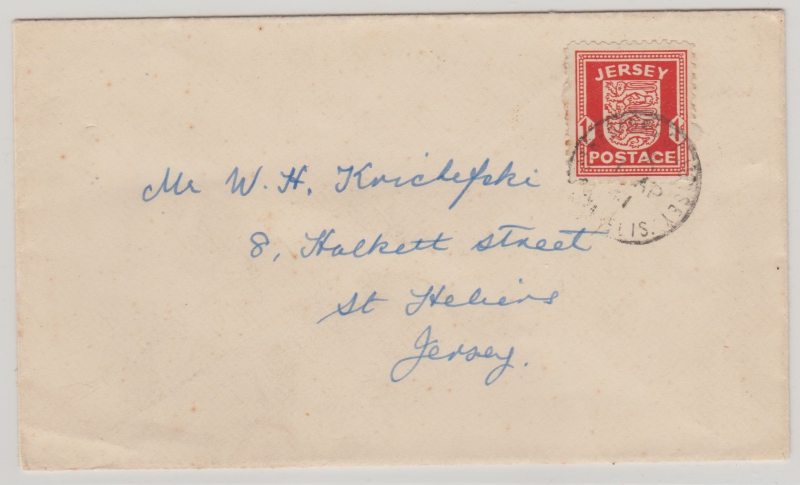 JERSEY
1
POSTAGE
AP
41
JERSEY
Mr W. H. Krichefski
8, Halkett Street
St Heliers
Jersey.